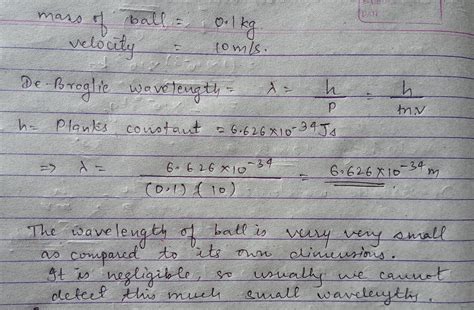 mass of ball = 0.1kg
velocity = 10m/s.
De-Broglie wavelength = λ = h/p = h/m.v
h = Planks constant = 6.626×10⁻³⁴Js
⇒ λ = 6.626×10⁻³⁴/(0.1)(10) = 6.626×10⁻³⁴m
The wavelength of ball is verry very small
as compared to its own dimensions.
It is negligible, so usually we cannot
detect this much small wavelengths.